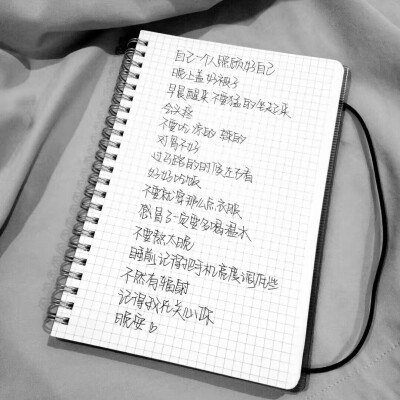 自己一个人照顾好自己
晚上盖好被子
早晨醒来不要猛的坐起来
会头疼
不要吃凉的 辣的
对胃不好
过马路的时候左右看
好好吃饭
不要就穿那么点衣服
感冒了一定要多喝温水
不要熬太晚
睡前记得把手机亮度调有些
不然有辐射
记得我在关心你
晚安